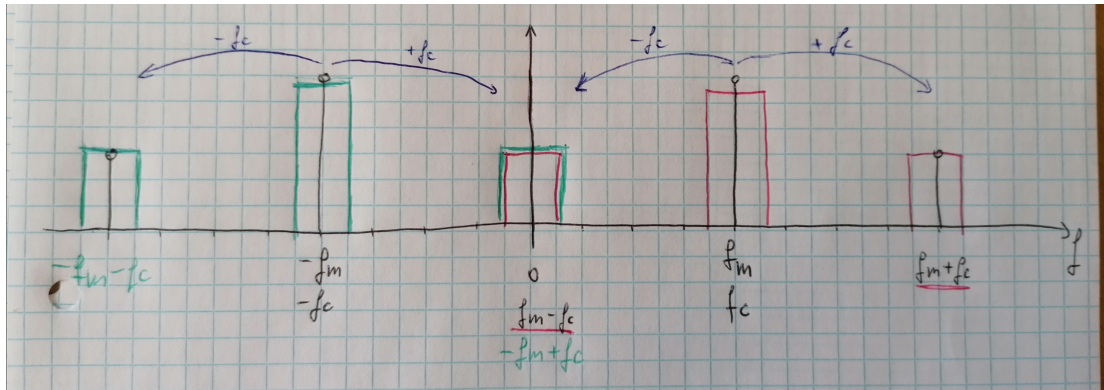 -fc
+fc
-fc
+fc
-fm-fc
-fm
-fc
0
fm-fc
-fm+fc
fm
fc
fm+fc
f